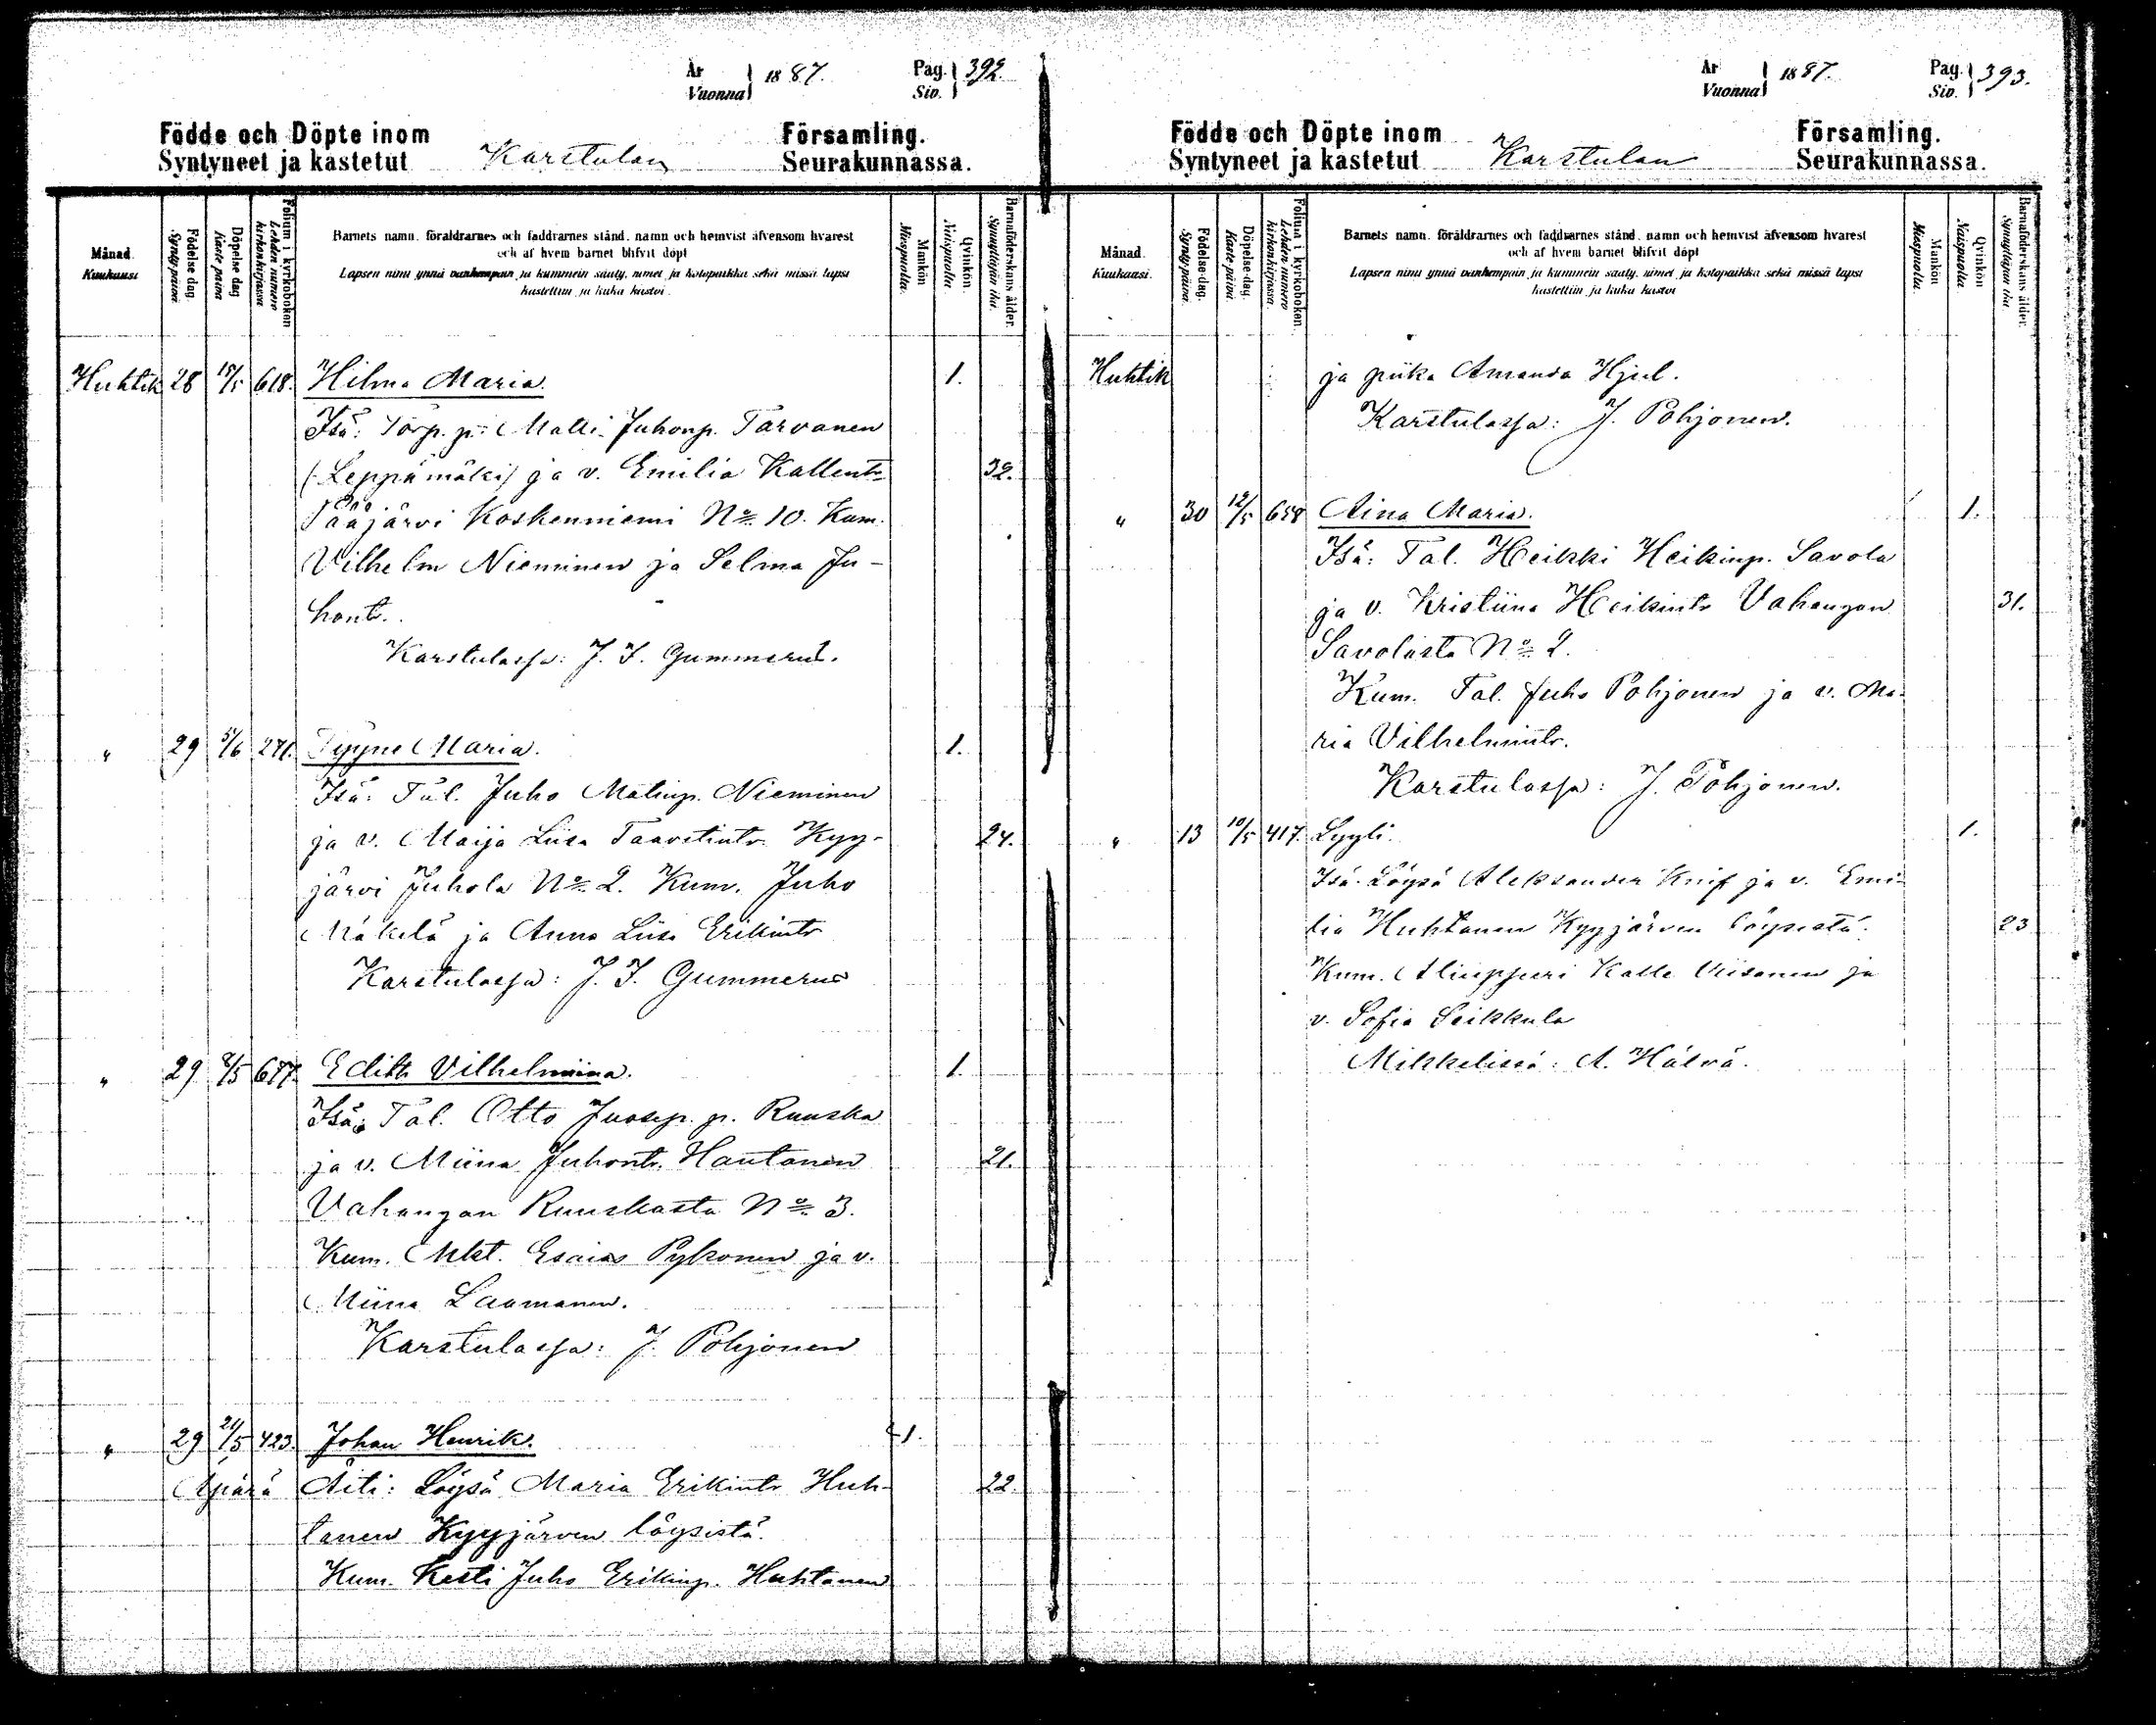 År
Vuonna
1887.
Pag.
Siv.
392.
Födde och Döpte inom
Syntyneet ja kastetut
Karstulan
Församling.
Seurakunnassa.
Månad.
Kuukausi.
Födelse dag.
Synty-päivä
Döpelse dag
Kaste-päivä
Folium i kyrkoboken
Lehden numero
kirkonkirjassa
Barnets namn, föräldrarnes och faddrarnes stånd, namn och hemvist äfvensom hvarest
och af hvem barnet blifvit döpt
Lapsen nimi ynnä vanhempain ja kummein sääty, nimet ja kotopaikka sekä missä lapsi
kastettiin ja kuka kastoi.
Mankön
Miespuolia.
Qvinkön.
Naispuolia
Barnaföderskans ålder.
Synnyttäjän ikä.
Huhtik 28 15/5 618. Hilma Maria. 1.
Isä: Torp. p: Matti Juhonp. Tarvanen
(Leppämäki) ja v. Emilia Kallentr 32.
Pääjärvi Koskenniemi No. 10. Kum.
Vilhelm Nieminen ja Selma Ju-
hontr.
Karstulassa: J. I. Gummerus.
" 29 5/6 271. Tyyne Maria. 1.
Isä: Tal. Juho Matinp. Nieminen
ja v. Maija Liisa Taavetintr. Kyy- 24.
järvi Juhola No. 2. Kum. Juho
Mäkelä ja Anna Liisa Erikintr
Karstulassa: J. I. Gummerus
" 29 8/5 677. Edith Vilhelmiina. 1.
Isä: Tal. Otto Juosep. p. Ruuska
ja v. Miina Juhontr. Hautanen 21.
Vahangan Ruuskasta No. 3.
Kum. Mkt. Esaias Pylkonen ja v.
Miina Laamanen.
Karstulassa: J. Pohjonen
" 29 21/5 423. Johan Henrik. 1.
Äpärä Äiti: Löysä Maria Erikintr Huh- 22.
tanen Kyyjärven löysistä.
Kum. Kesti Juho Erikinp. Huhtanen
År
Vuonna
1887.
Pag.
Siv.
393.
Födde och Döpte inom
Syntyneet ja kastetut
Karstulan
Församling.
Seurakunnassa.
Månad.
Kuukausi.
Födelse-dag.
Synty-päivä.
Döpelse-dag.
Kaste-päivä.
Folium i kyrkoboken.
Lehden numero
kirkonkirjassa.
Barnets namn, föräldrarnes och faddrarnes stånd, namn och hemvist äfvensom hvarest
och af hvem barnet blifvit döpt
Lapsen nimi ynnä vanhempain ja kummein sääty, nimet ja kotopaikka sekä missä lapsi
kastettiin ja kuka kastoi
Mankön
Miespuolia.
Qvinkön
Naispuolia.
Barnaföderskans ålder.
Synnyttäjän ikä.
Huhtik ja piika Amanda Hjul.
Karstulassa: J. Pohjonen.
" 30 12/5 658 Aina Maria. 1.
Isä: Tal. Heikki Heikinp. Savola
ja v. Kristiina Heikintr Vahangan 31.
Savolasta No. 2.
Kum. Tal. Juho Pohjonen ja v. Ma-
ria Vilhelmintr.
Karstulassa: J. Pohjonen.
" 13 10/5 417. Lyyli. 1.
Isä: Löysä Aleksander Knif ja v. Emi-
lia Huhtanen Kyyjärven löysistä. 23
Kum. Aliupseeri Kalle Viisanen ja
v. Sofia Leikkula
Mikkelissä: A. Hälvä.